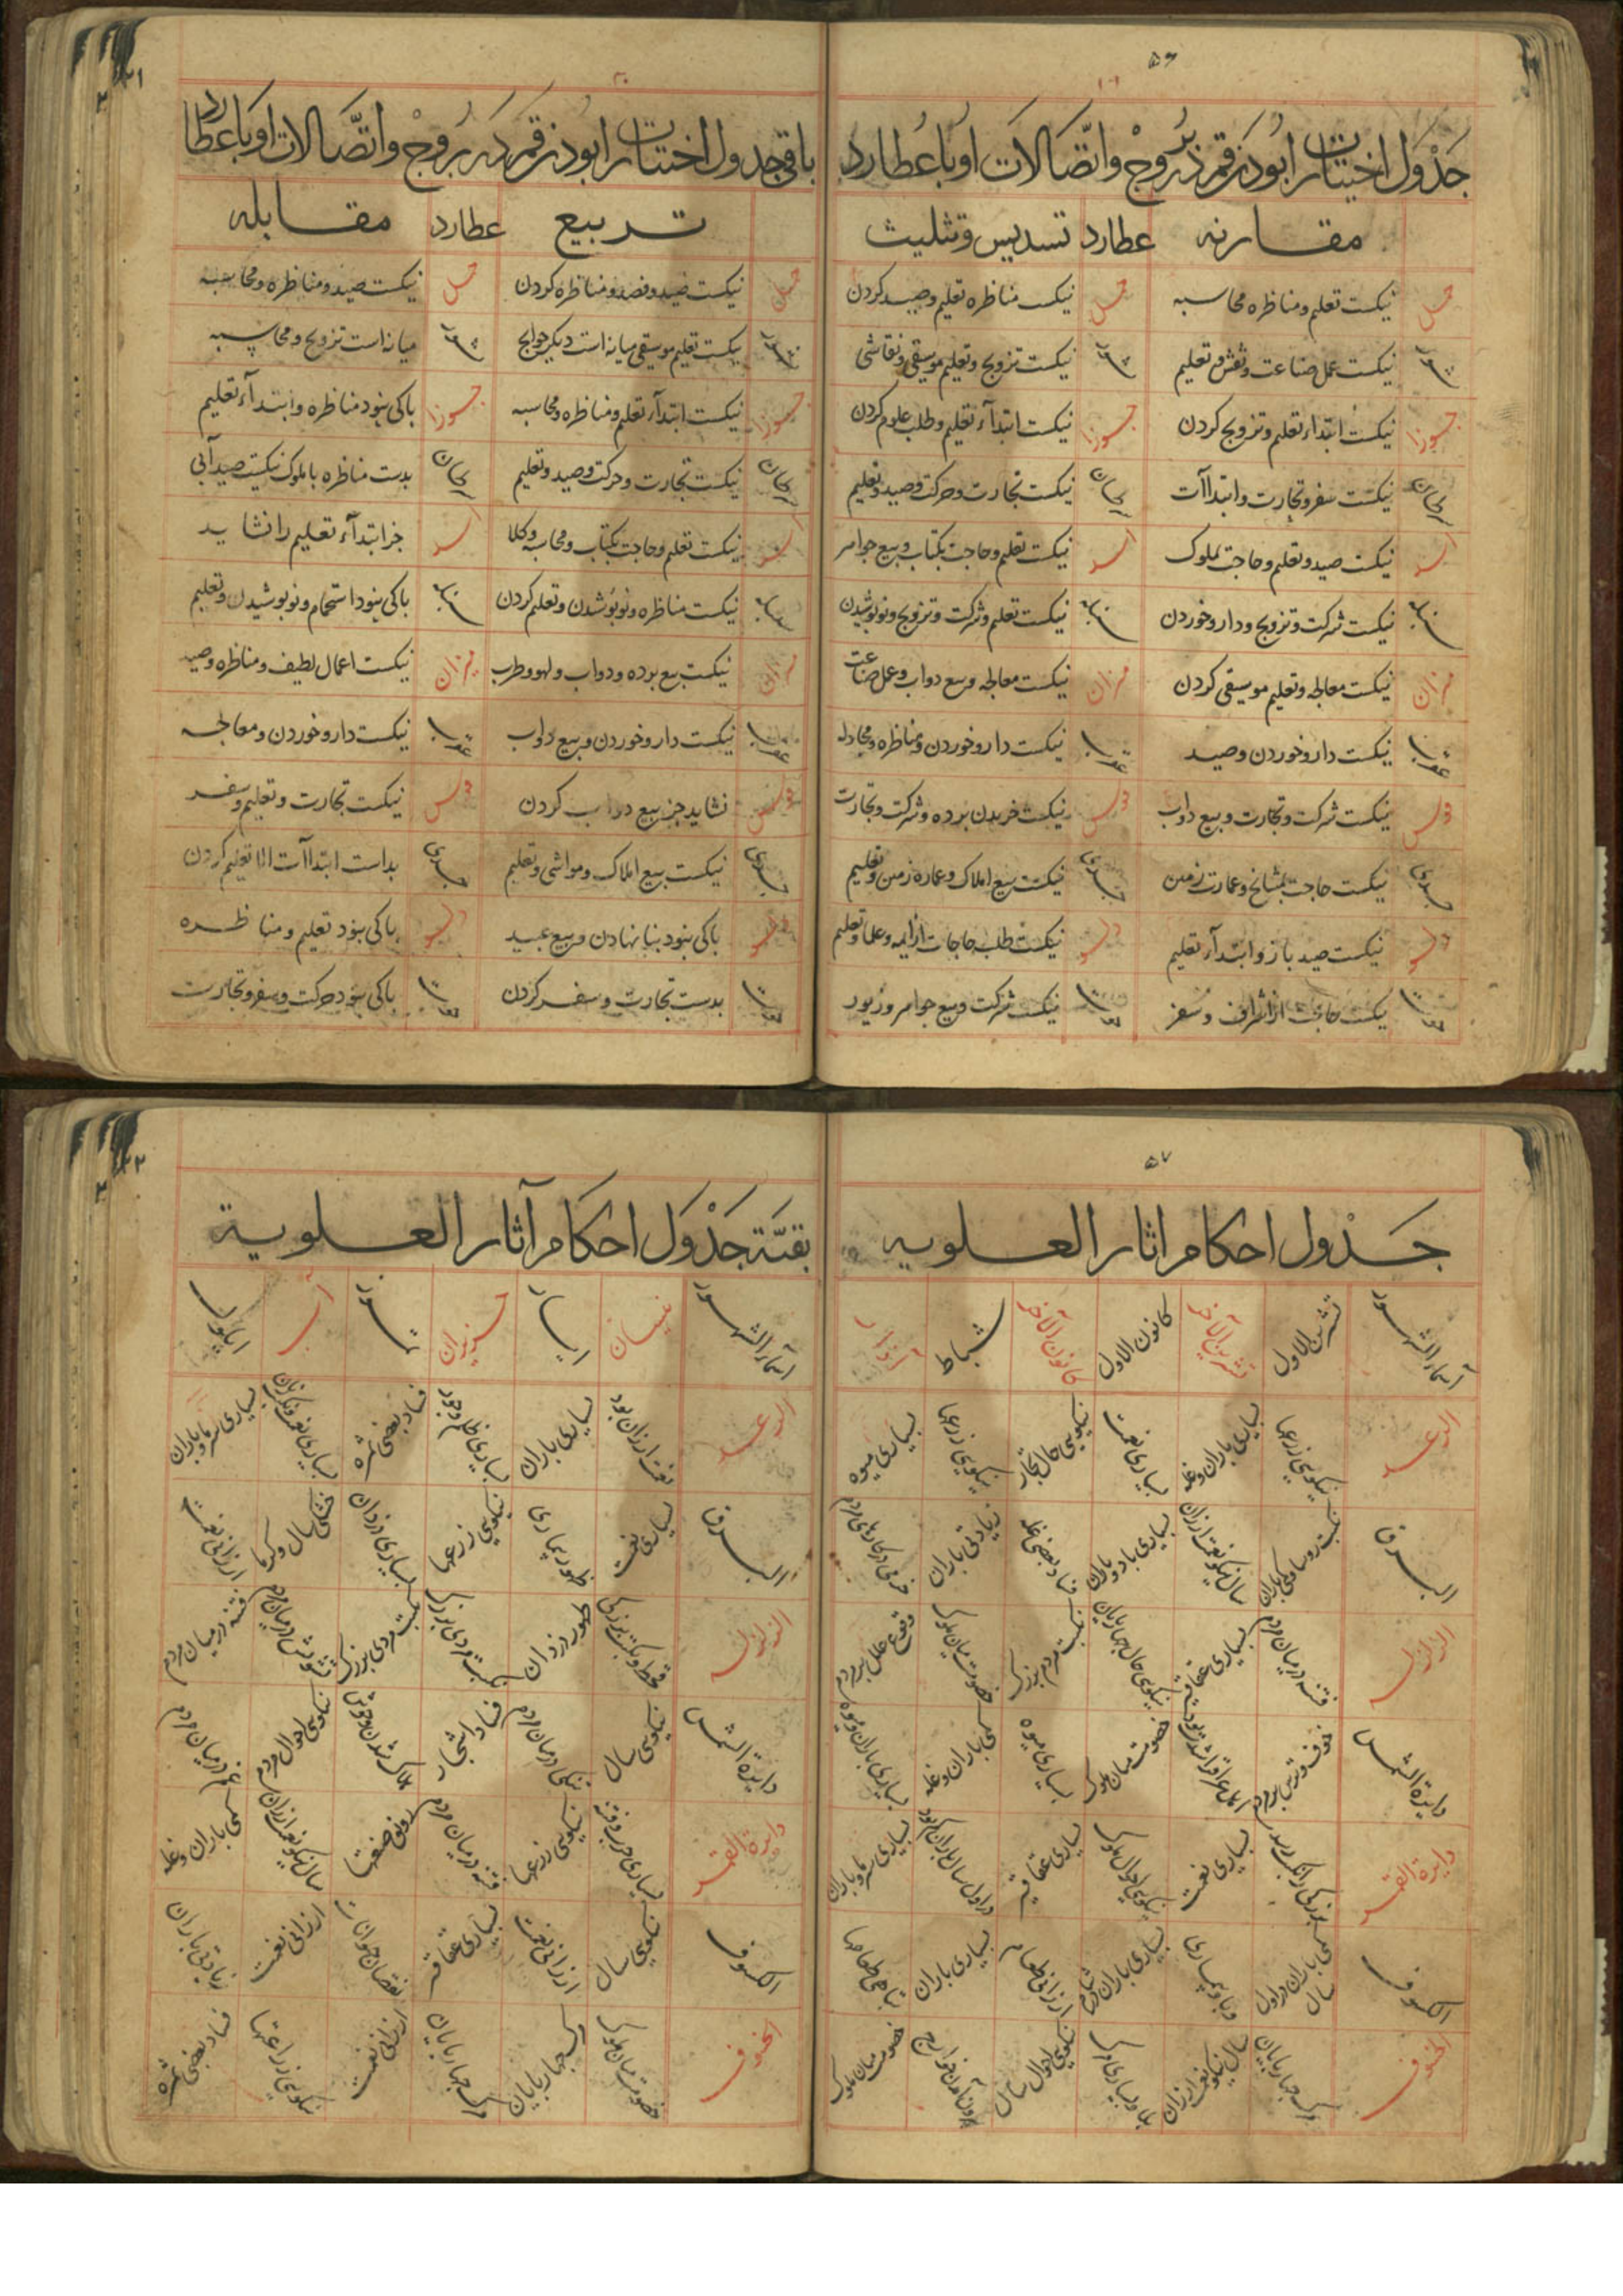 ۵۶
جدول اختیارات ابودن قمر در بروج واتصالات او با عطارد
مقارنه عطارد تسدیس وتثلیث
حمل نیکست تعلم ومناظره محاسبه حمل نیکست مناظره تعلیم وصید کردن
ثور نیکست عمل صناعت ونقش وتعلیم ثور نیکست تزویج وتعلیم موسیقی ونقاشی
جوزا نیکست ابتداء تعلیم وتزویج کردن جوزا نیکست ابتدآء تعلیم وطلب علوم کردن
سرطان نیکست سفر وتجارت وابتداآت سرطان نیکست تجارت وحرکت وصید وتعلیم
اسد نیکست صید وتعلم وحاجت بملوک اسد نیکست تعلم وحاجت بکتاب وبیع جواهر
سنبله نیکست شرکت وتزویج ودارو خوردن سنبله نیکست تعلم وشرکت وتزویج ونو پوشیدن
میزان نیکست معالجه وتعلیم موسیقی کردن میزان نیکست معالجه وبیع دواب وعمل صناعت
عقرب نیکست دارو خوردن وصید عقرب نیکست دارو خوردن ومناظره ومجادله
قوس نیکست شرکت وتجارت وبیع دواب قوس نیکست خریدن برده وشرکت وتجارت
جدی نیکست حاجت بمشایخ وعمارت زمین جدی نیکست بیع املاک وعماره زمین وتعلیم
دلو نیکست صید باز وابتدآء تعلیم دلو نیکست طلب حاجات از ایمه وعلما وتعلیم
حوت نیکست حاجت از اشراف وسفر حوت نیکست شرکت وبیع جواهر وزیور
باقی جدول اختیارات ابودن قمر در بروج واتصالات او با عطارد
تربیع عطارد مقابله
حمل نیکست صید وفصد ومناظره کردن حمل نیکست صید ومناظره ومحاسبه
ثور نیکست تعلیم موسیقی میانه است دیگر حوایج ثور میانه است تزویج ومحاسبه
جوزا نیکست ابتدآء تعلم ومناظره ومحاسبه جوزا باکی نبود مناظره وابتدآء تعلیم
سرطان نیکست تجارت وحرکت وصید وتعلیم سرطان بدست مناظره با ملوک نیکست صید آبی
اسد نیکست تعلم وحاجت بکتاب ومحاسبه وکلا اسد جز ابتدآء تعلیم را نشاید
سنبله نیکست مناظره ونو پوشیدن وتعلم کردن سنبله باکی نبود استحمام ونو پوشیدن وتعلیم
میزان نیکست بیع برده ودواب ولهو وطرب میزان نیکست اعمال لطیف ومناظره وصید
عقرب نیکست دارو خوردن وبیع دواب عقرب نیکست دارو خوردن ومعالجه
قوس نشاید جز بیع دواب کردن قوس نیکست تجارت وتعلیم وسفر
جدی نیکست بیع املاک ومواشی وتعلیم جدی بداست ابتداآت الا تعلیم کردن
دلو باکی نبود بنا نهادن وبیع عبید دلو باکی نبود تعلیم ومناظره
حوت بدست تجارت وسفر کردن حوت باکی نبود حرکت وسفر وتجارت
۵۷
جدول احکام اثار العلویه
اسماء الشهور تشرین الاول تشرین الآخر کانون الاول کانون الآخر شباط آذار
الرعد نیکویی زرعها بسیاری باران وغله بسیاری نعمت نیکویی حال تجار نیکویی زرعها بسیاری میوه
البرق سال نیکو نعمت ارزان بسیاری باد وباران فساد بعضی غله زیادتی باران
الزلزله فتنه در میان مردم نیکویی حال چهارپایان نکبت مردم بزرک خصومت میان ملوک وقوع خلل بر مردم
دایرة الشمس خوف وترس بر مردم خصومت میان ملوک بسیاری میوه کمی باران وغله بسیاری باران ومیوه
دایرة القمر بسیاری نعمت نیکویی احوال ملوک بسیاری سرما وباران
الکسوف کمی باران در اول سال وبا وبیماری ارزانی طعام بسیاری باران تباهی طعامها
الخسوف مرک چهارپایان سال نیکو نعمت ارزان نیکویی احوال سال خصومت میان ملوک
بقیة جدول احکام آثار العلویة
اسماء الشهور نیسان ایار حزیران تموز آب ایلول
الرعد نعمت ارزان بود بسیاری باران بسیاری ظلم وجور فساد بعضی ثمره بسیاری سرما وباران
البرق بسیاری نعمت ظهور بیماری نیکویی زرعها بسیاری دزدان خشکی سال وکرما ارزانی نعمت
الزلزله ظهور دزدان نکبت مردی بزرک نکبت مردی بزرک تشویش در میان مردم فتنه در میان مردم
دایرة الشمس نیکویی سال تنکی در میان مردم فساد اشجار هلاک شدن وحوش نیکویی احوال مردم غم در میان مردم
دایرة القمر بسیاری حرب وفتنه نیکویی زرعها فتنه در میان مردم رونق صنعتها سال نیکو نعمت ارزان کمی باران وغله
الکسوف نیکویی سال ارزانی نعمت نقصان حیوانات ارزانی نعمت زیادتی باران
الخسوف خصومت میان ملوک مرک چهارپایان مرک چهارپایان ارزانی نعمت نیکویی زراعتها فساد بعضی ثمره